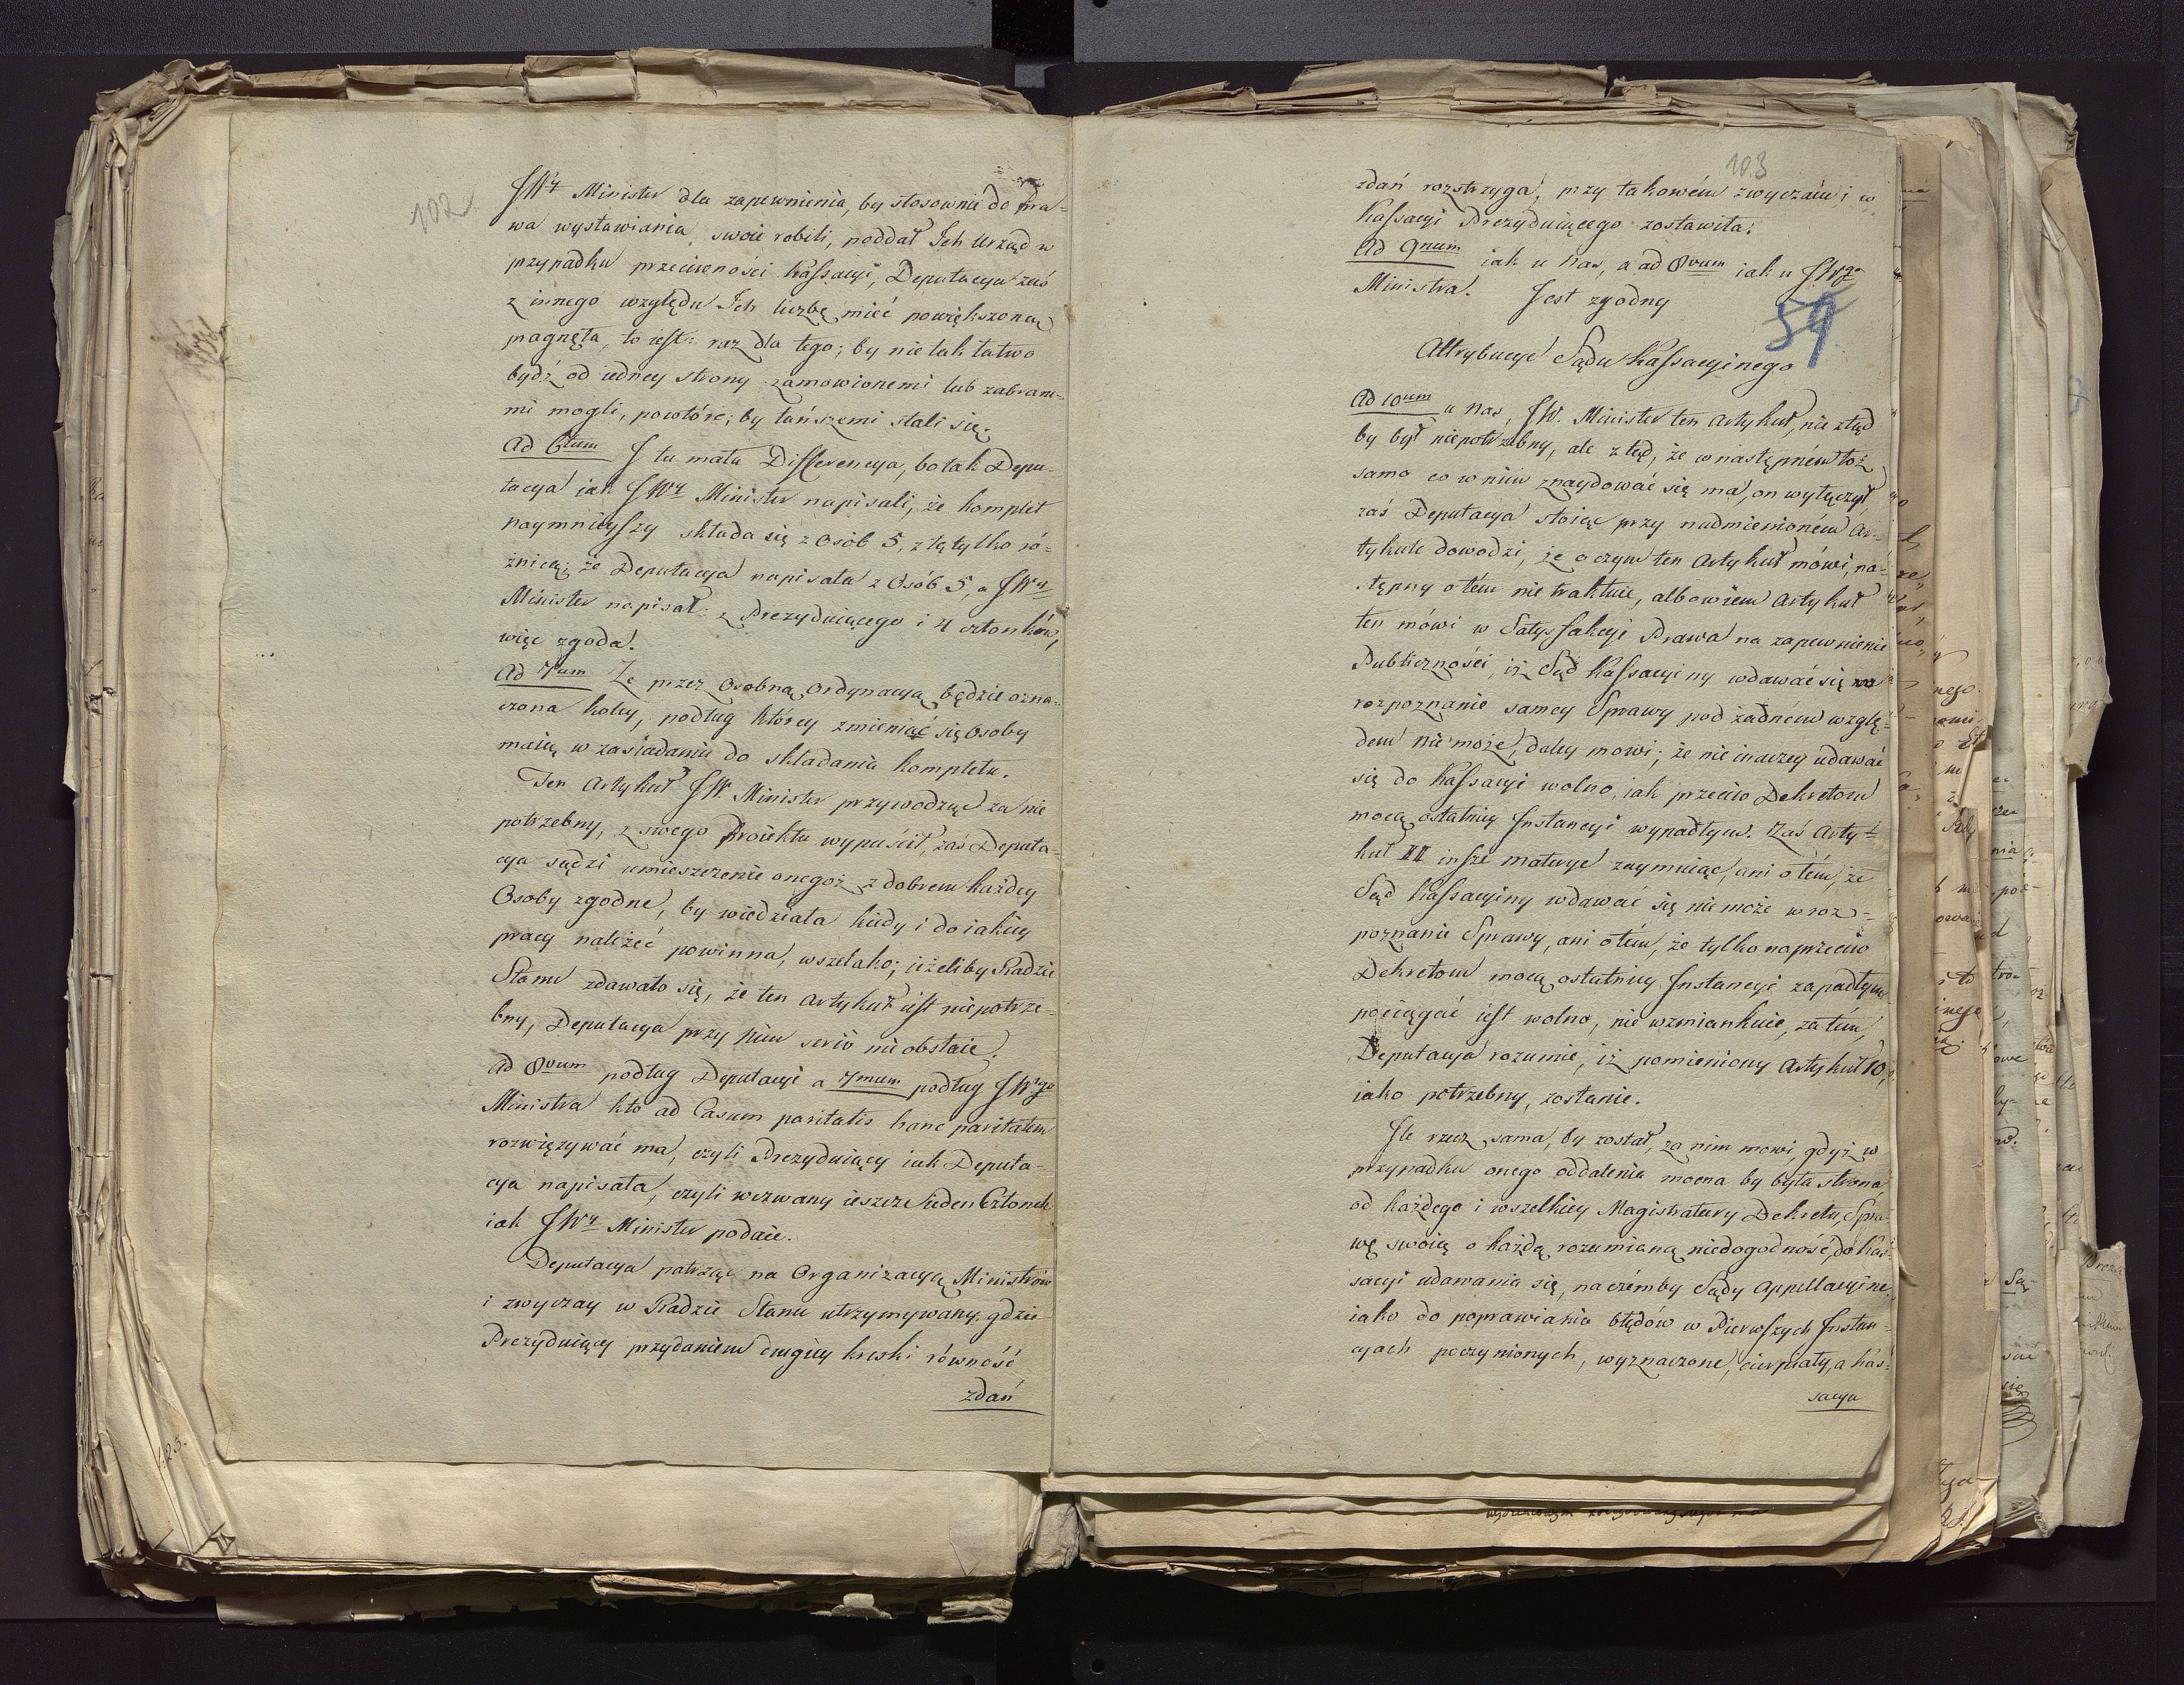 102
JWy Minister dla zapewnienia, by stosownie do Pra=
wa wystawiania swoie robili, poddał Ich Urząd w
przypadku przeciwności Kassacyi, Deputacya zaś
z innego względu Ich liczbę mieć powiększoną
pragnęła, to iest: raz dla tego; by nie tak łatwo
bydź od iedney strony zamowionemi lub zabrane-
mi mogli, powtóre; by tańszemi stali się.
Ad 6tum I tu mała Differencya, bo tak Depu-
tacya iak JWy Minister napisali, że komplet
naymnieyszy składa się z Osób 5, z tą tylko ró=
żnicą; że Deputacya napisała z Osób 5, a JWy
Minister napisał: z Prezyduiącego i 4 członków,
więc zgoda.
Ad 7um Że przez Osobną Ordynacyą będzie ozna=
czona koley, podług którey zmieniać się Osoby
maią w zasiadaniu do składania kompletu.
Ten Artykuł JW. Minister przywodząc za nie
potrzebny, z swego Proiektu wypuścił, zaś Deputa=
cya sądzi umieszczenie onegoż z dobrem każdey
Osoby zgodne, by wiedziała kiedy i do iakiey
pracy należeć powinna, wszelako; ieżeliby Radzie
Stanu zdawało się, że ten Artykuł iest niepotrze=
bny, Deputacya przy nim serio nie obstaie.
Ad 8vum podług Deputacyi a 7mum podług JWgo
Ministra kto ad Casum paritatis hanc paritatem
rozwięzywać ma, czyli Prezyduiący iak Deputa-
cya napisała, czyli wezwany ieszcze ieden Członek
iak JWy Minister podaie.
Deputacya patrząc na Organizacyą Ministrów
i zwyczay w Radzie Stanu utrzymywany, gdzie
Prezyduiący przydaniem drugiey kreski równość
zdań
103
zdań rozstrzyga, przy takowém zwyczaiu i w
Kassacyi Prezyduiącego zostawiła.
Ad 9num iak u nas, a ad 8vum iak u JWgo
Ministra. Jest zgodny
59
Attrybucye Sądu Kassacyinego
Ad 10um u nas, JW. Minister ten Artykuł, nie ztąd
by był niepotrzebny, ale z tąd, że w następném toż
samo co w nim znaydować się ma, on wyłączył
zaś Deputacya stoiąc przy nadmienioném Ar-
tykule dowodzi, że o czym ten Artykuł mówi, na=
stępny o tém nie traktuie, albowiem Artykuł
ten mówi w Satysfakcyi Prawa na zapewnienie
Publiczności, iż Sąd Kassacyiny wdawać się w
rozpoznanie samey Sprawy pod żadném wzglę=
dem nie może, daley mowi; że nie inaczey udawać
się do Kassacyi wolno, iak przeciw Dekretom
mocą ostatniey Instancyi wypadłym. Zaś Arty=
kuł 11 insze materye zaymuiąc, ani o tém, że
Sąd Kassacyiny wdawać się nie może w roz=
poznanie Sprawy, ani o tém, że tylko naprzeciw
Dekretom mocą ostatniey Instancyi zapadłym
pociągać iest wolno, nie wzmiankuie, zatém,
Deputacya rozumie, iż pomieniony Artykuł 10,
iako potrzebny, zostanie.
Ile rzecz sama, by został, za nim mowi, gdyż w
przypadku onego oddalenia mocna by była strona
od każdego i wszelkiey Magistratury Dekretu, Spra=
wę swoią o każdą rozumianą niedogodność, do Kas=
sacyi udawania się, na czémby Sądy Appellacyine,
iako do poprawiania błędów w Pierwszych Instan=
cyach poczynionych, wyznaczone, cierpiały, a Kas=
sacya